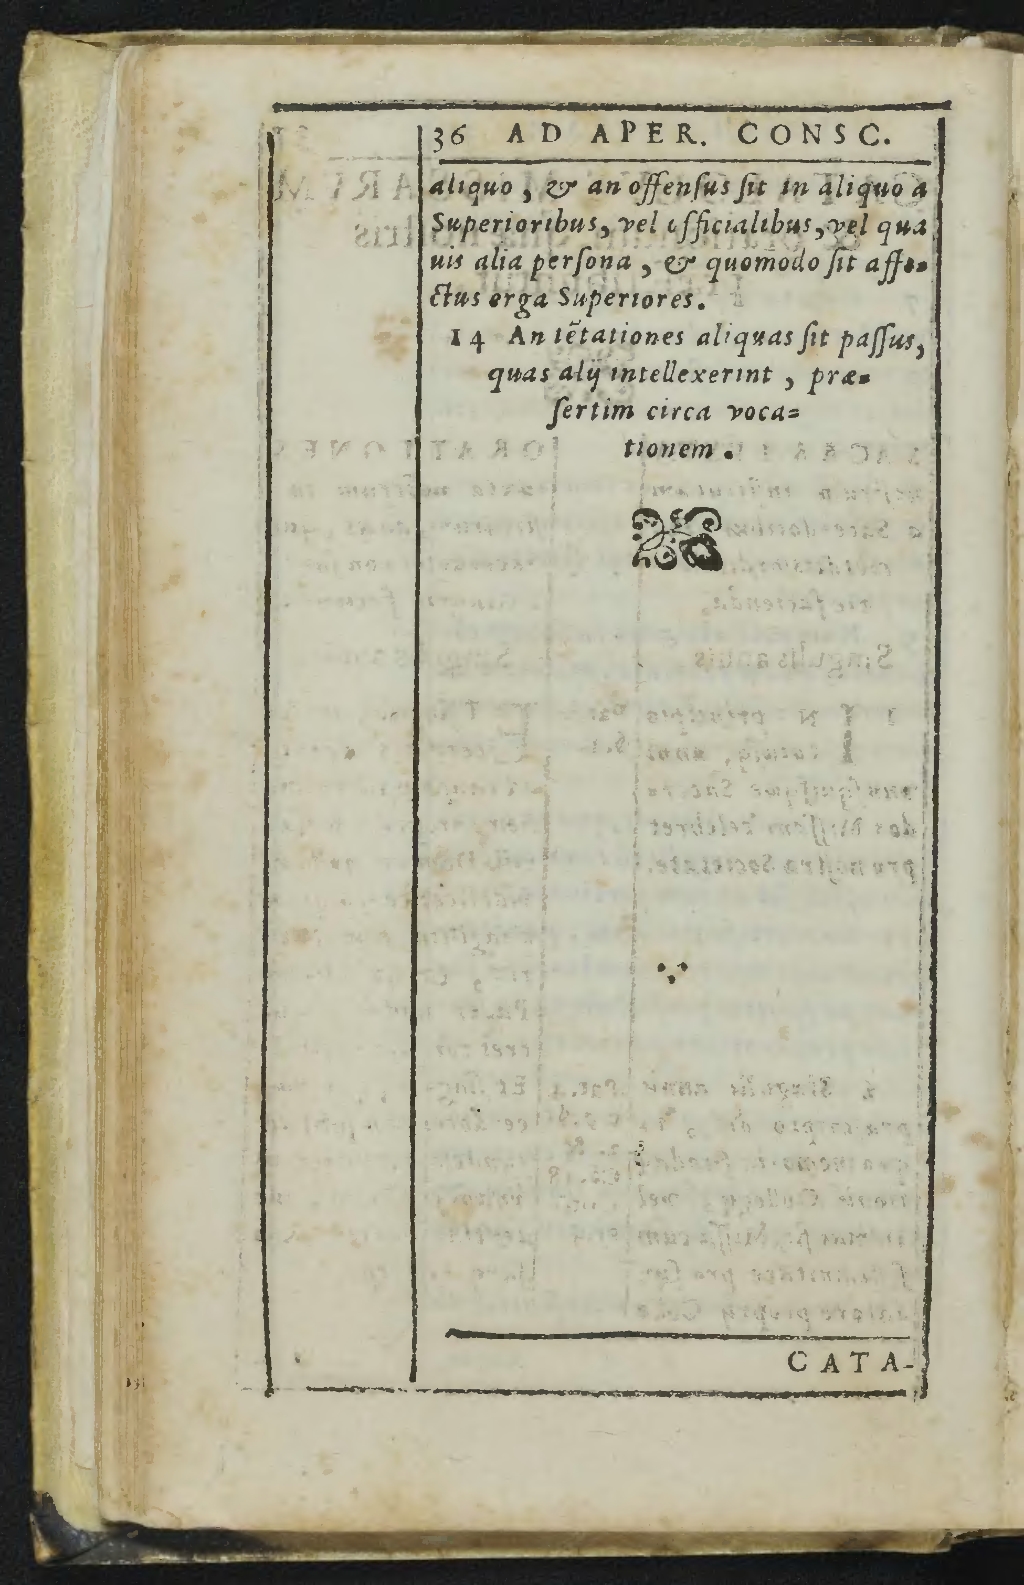 36 AD APER. CONSC.
aliquo, & an offenſus ſit in aliquo a
Superioribus, vel officialibus, vel qua
uis alia perſona, & quomodo ſit affe-
ctus erga Superiores.
14 An tētationes aliquas ſit paſſus,
quas alij intellexerint, præ-
ſertim circa voca-
tionem.
CATA-